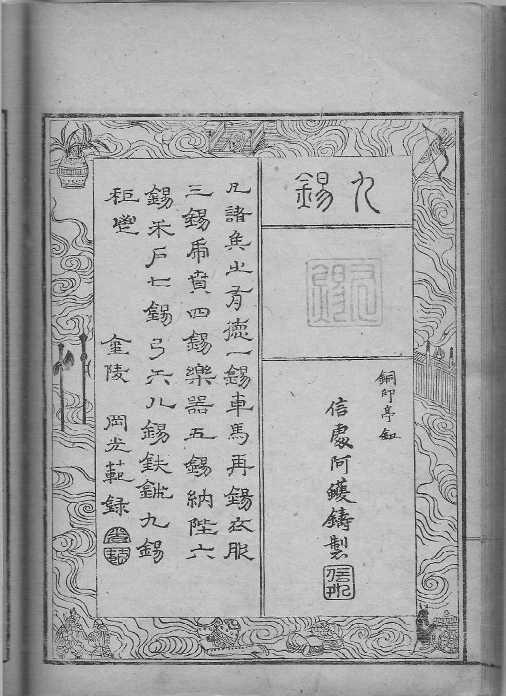 九錫
九錫
銅印亭鈕
信處阿護鑄製
凡諸矦之有德一錫車馬再錫衣服
三錫虎賁四錫樂器五錫納陛六
錫朱戶七錫弓矢八錫鈇鉞九錫
秬鬯
金陵 岡光範録